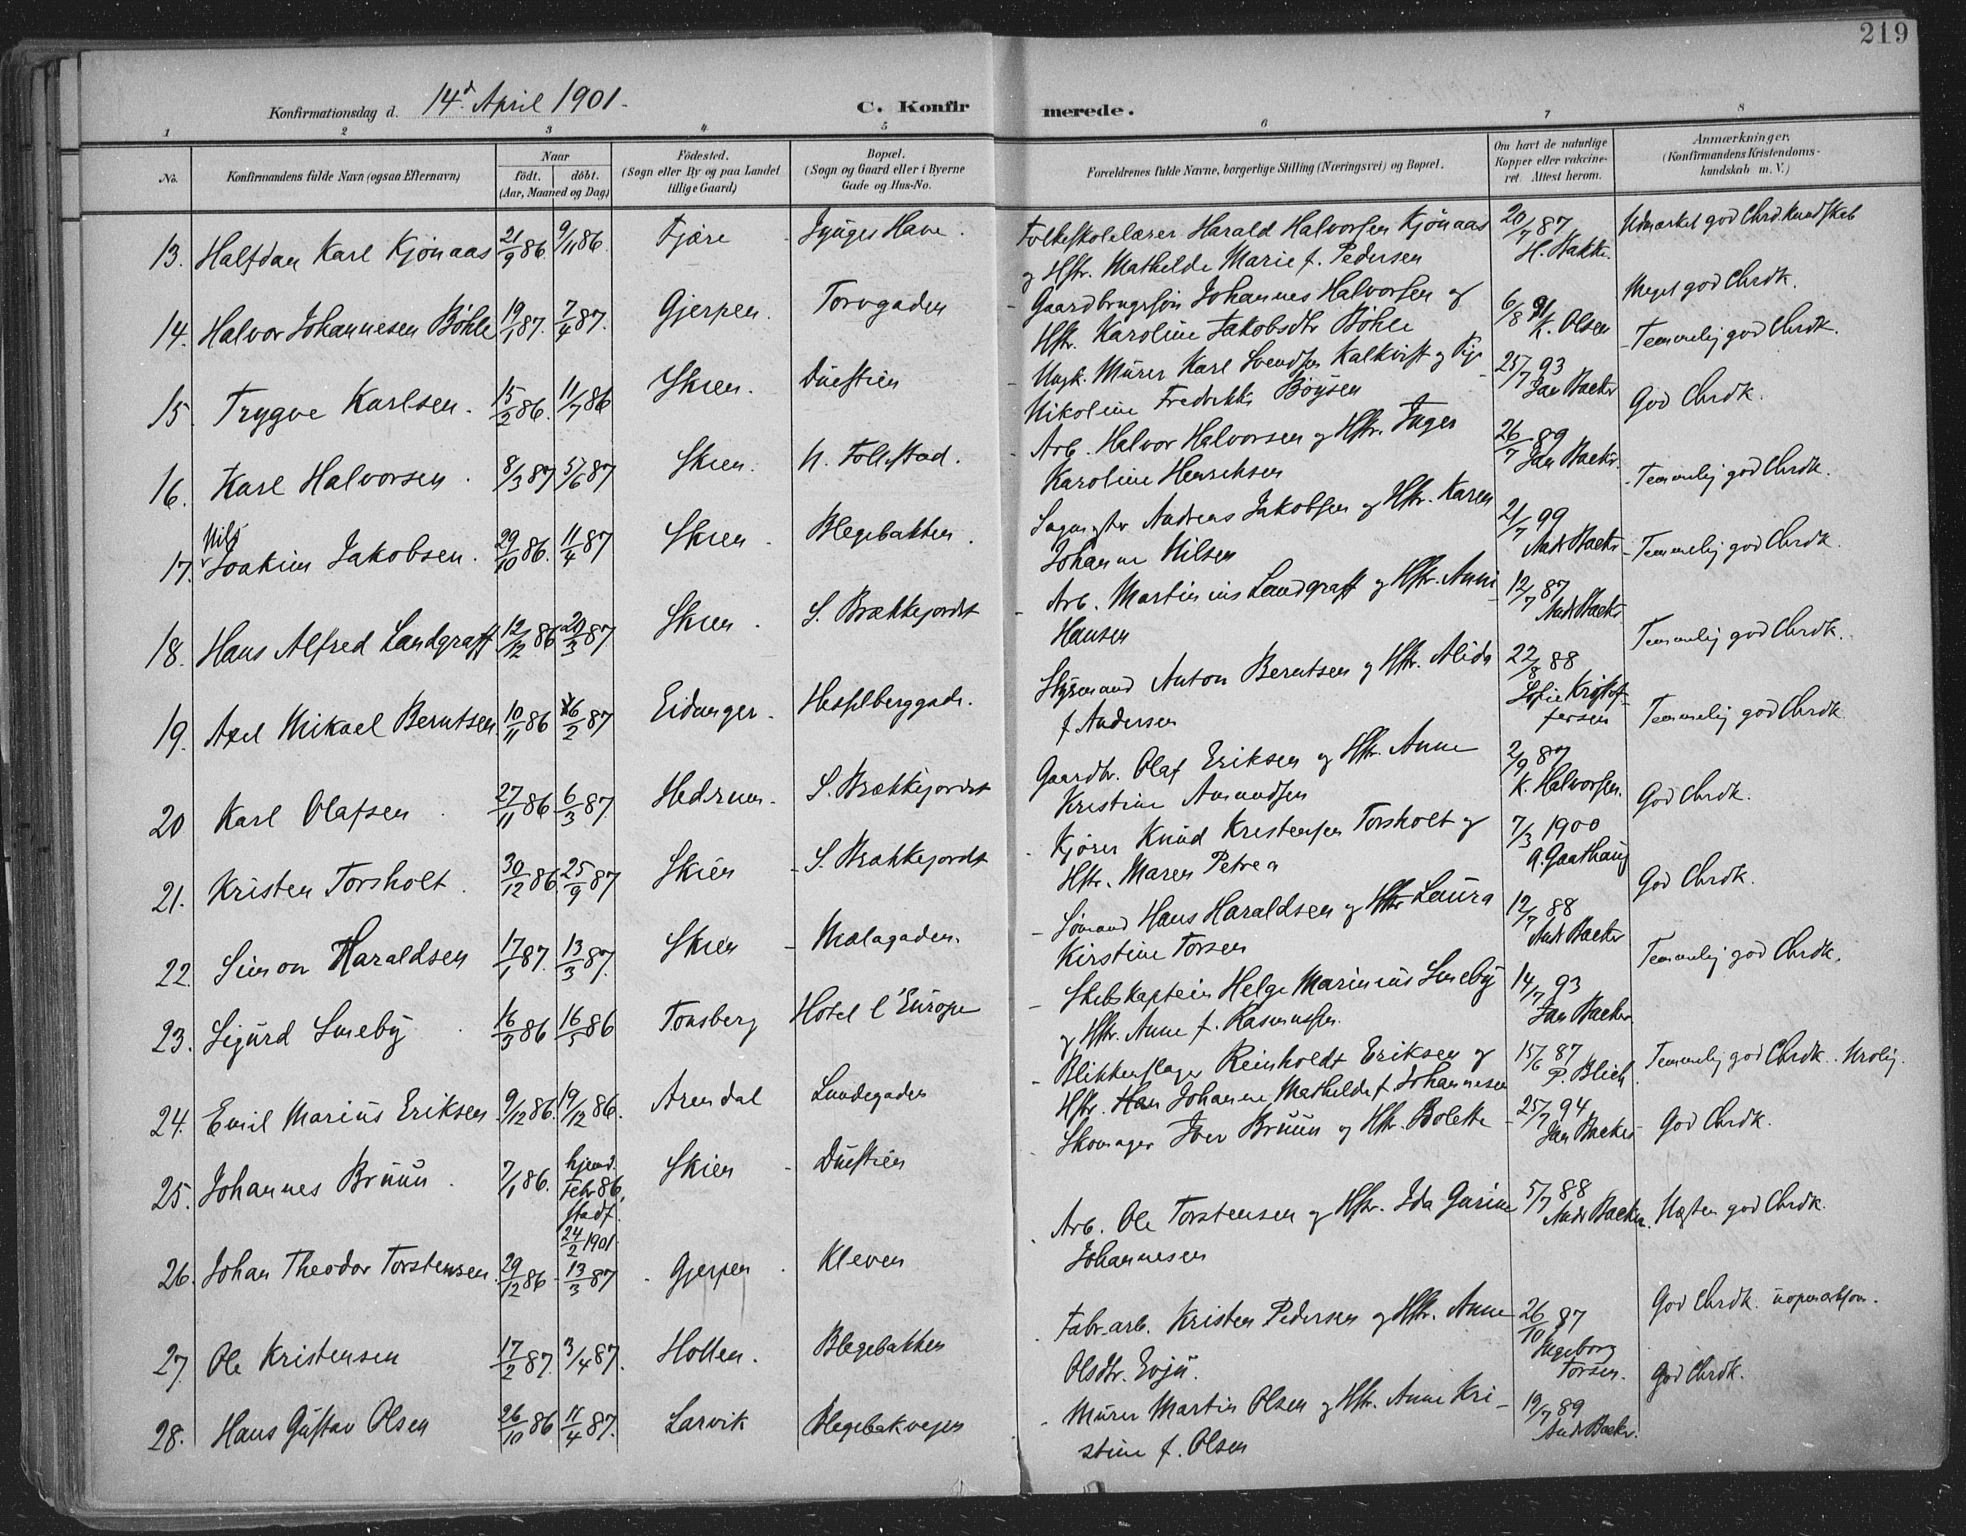 219
Konfirmationsdag d. 14d April 1901.
C. Konfirmerede.
1 2 3 4 5 6 7 8
No. Konfirmandens fulde Navn (ogsaa Efternavn) Naar født. døbt. (Aar, Maaned og Dag) Fødested. (Sogn eller By og paa Landet tillige Gaard) Bopæl. (Sogn og Gaard eller i Byerne Gade og Hus-No. Forældrenes fulde Navne, borgerlige Stilling (Næringsvei) og Bopæl. Om havt de naturlige Kopper eller vakcineret. Attest herom. Anmærkninger. (Konfirmandens Kristendomskundskab m. V.)
13. Halfdan Karl Kjønaas 21/9 86. 9/11 86. Fjære Jyuges Have. Folkeskolelærer Harald Halvorsen Kjønaas 20/7 87 Udmærket god Chrd. Kundskab
og Hstr. Mathilde Marie f. Pedersen H. Bakke.
14. Halvor Johannesen Bøhle 19/1 87. 7/4 87. Gjerpen. Torvgaden Gaardbrugsson Johannes Halvorsen og 6/8 91 Meget god Chrdk.
Hstr. Karoline Jakobsdtr Bøhle K. Olsen
15. Trygve Karlsen. 15/2 86. 11/7 86 Skien. Duestien Ungk. Murer Karl Svendsen Kalkvist og Pige 25/7 93 Temmelig god Chrdk.
Nikoline Fredrikke Bøysen Jan Backer
16. Karl Halvorsen. 8/3 87 5/6 87 Skien. N. Follestad. Arb. Halvor Halvorsen og Hstr. Inger 26/7 89 God Chrdk.
Karoline Henriksen Jan Backer
17. Nils Joakim Jakobsen. 29/10 86. 11/4 87 Skien. Blegebakken. Sagmester Andreas Jakobsen og Hstr. Karen 21/7 99 Temmelig god Chrdk.
Johanne Nilsen And Backer
18. Hans Alfred Landgraff 12/12 86 20/3 87 Skien. S. Brækkejordet Arb. Martinius Landgraff og Hstr. Anne 12/7 87 Temmelig god Chrdk.
Hansen And Backer
19. Axel Mikael Berntsen 10/11 86 16/2 87 Eidanger. Hesselberggadn. Styrmand Anton Berntsen og Hstr. Alida 22/8 88 Temmelig god Chrdk.
f Andersen Sofie Kristoffersen
20 Karl Olafsen. 27/11 86 6/3 87 Hedrum. S. Brækkejordet Gaardbr. Olaf Eriksen og Hstr. Anne 2/9 87 Temmelig god Chrdk
Kristine Amundsen K. Halvorsen.
21. Kristen Torsholt. 30/12 86 25/9 87 Skien S. Brækkejordet Kjører Knud Kristensen Torsholt og 7/3 1900 God Chrdk.
Hstr. Maren Petrea A. Gaathaug
22 Simon Haraldsen 17/1 87. 13/3 87. Skien Mælagaden. Sømand Hans Haraldsen og Hstr Laura 12/7 88 God Chrdk.
Kirstine Torsen And Backer
23. Sigurd Smeby 16/3 86 16/5 86 Tønsberg Hotel l'Europe Skibskaptein Helge Marinius Smeby 14/7 93 Temmelig god Chrdk.
og Hstr. Anne f. Rasmussen. Jan Backer
24. Emil Marius Eriksen 9/12 86. 19/12 86. Arendal Lundegaden Blikkenslager Reinholdt Eriksen og 15/6 87 Temmelig god Chrdk. Urolig.
Hstr. Johanne Mathilde f Johannesen P. Blich.
25. Johannes Bruun. 7/1 86. hjemd. Febr 86, stadf. 24/2 1901. Skien Duestien Skomager Iver Bruun og Hstr. Bolette 25/7 94 Jan Backer God Chrdk.
26. Johan Theodor Torstensen. 29/12 86. 13/3 87 Gjerpen Kleven Arb. Ole Torstensen og Hstr. Ida Gurine 5/7 88 Næsten god Chrdk.
Johannesen And Backer.
27. Ole Kristensen 17/2 87. 3/4 87. Hollen. Blegebakken Fabr.arb. Kristen Pedersen og Hstr. Anne 26/10 87 God Chrdk. uopmærksom.
Olsdtr. Evju. Ingeborg Torsen.
28. Hans Gustav Olsen 26/10 86 11/4 87. Larvik Blegebakvejen Murer Martin Olsen og Hstr. Anne Kri- 19/7 89 God Chrdk.
stine f. Olsen And Backer.